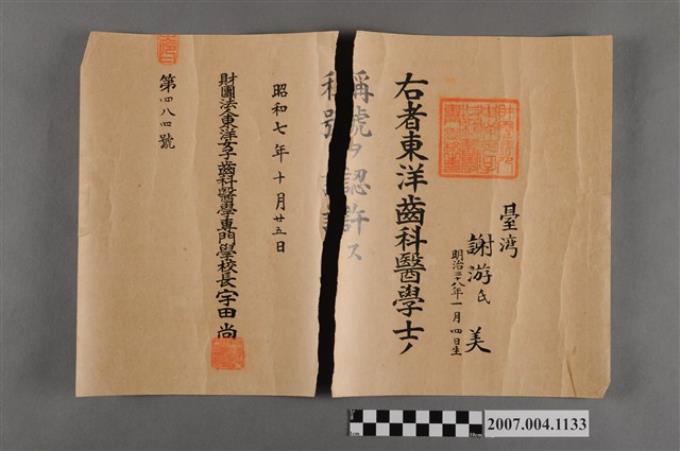 臺湾
謝游氏美
明治三十八年一月四日生
右者東洋齒科醫學士ノ
稱號ヲ認許ス
昭和七年十月廿五日
財團法人東洋女子齒科醫學專門學校長宇田尚
第四八四號
2007.004.1133